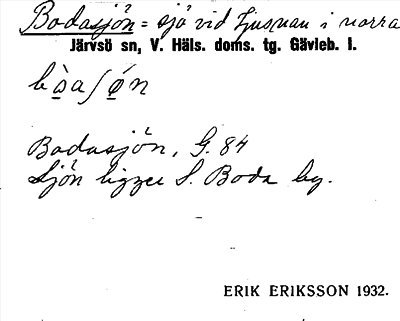 Bodasjön = sjö vid Ljusnan i norra
Järvsö sn, V. Häls. doms. tg. Gävleb. l.
bòa∫ǿn
Bodasjön, G. 84
Sjön ligger S. Boda by.
ERIK ERIKSSON 1932.